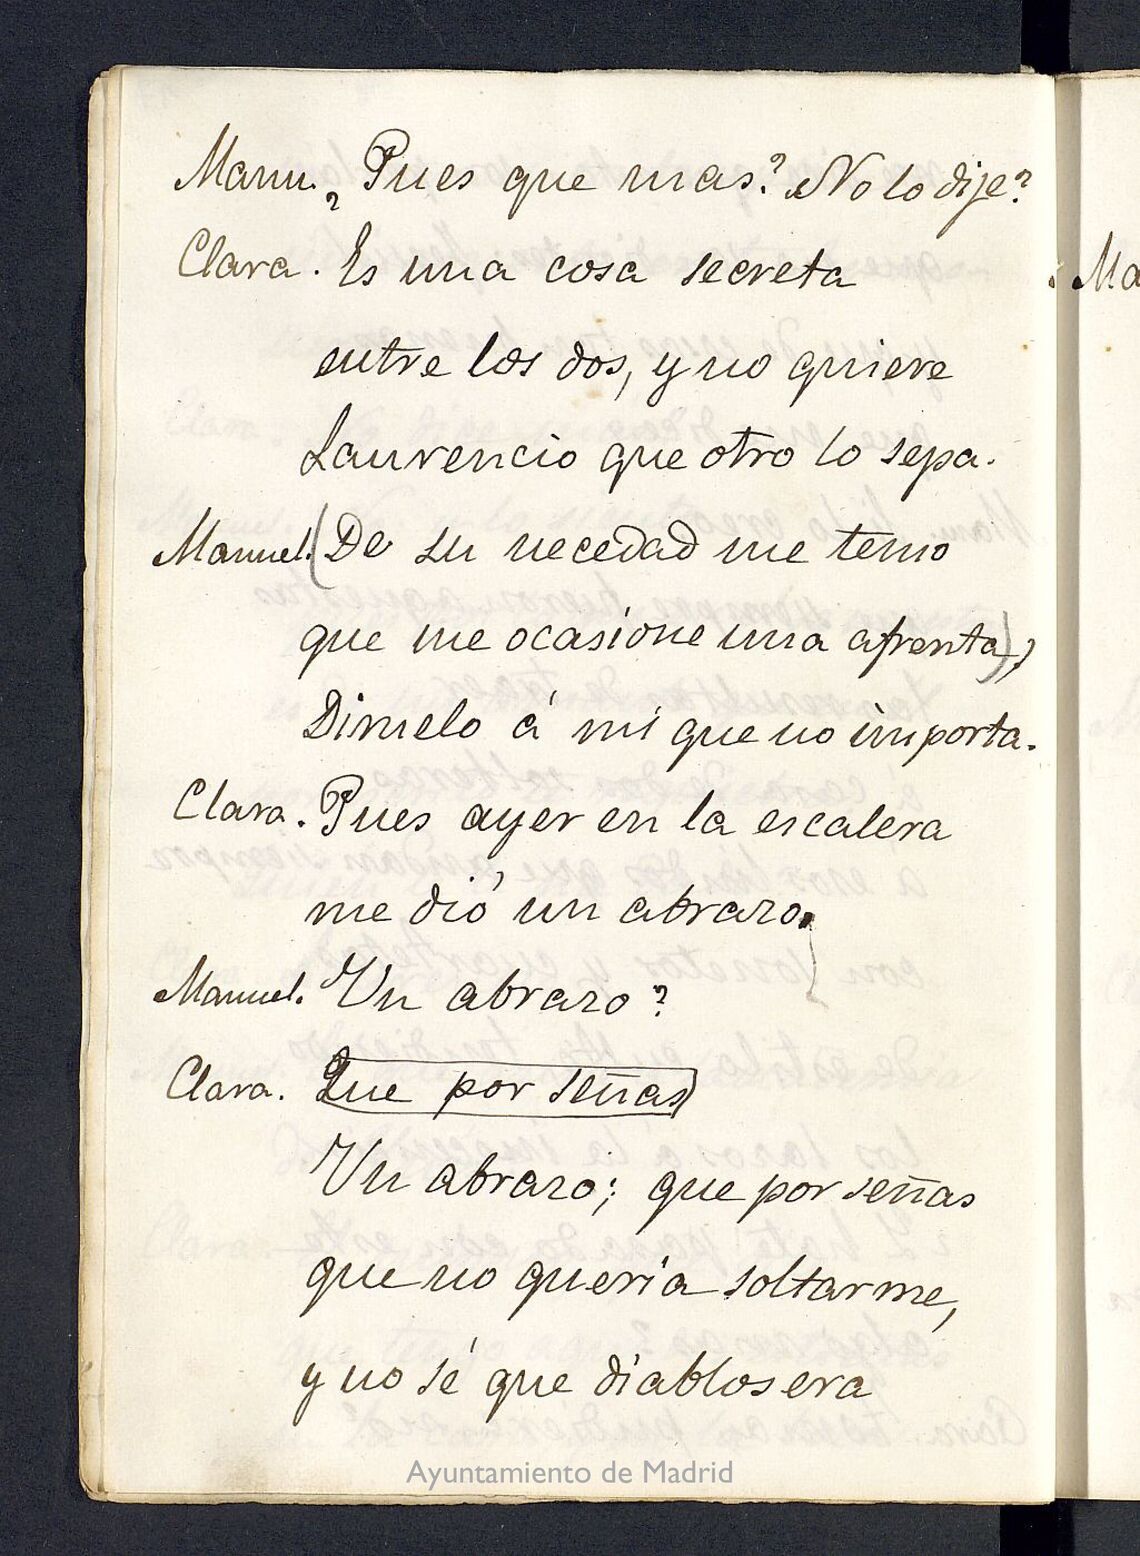 Manu. ¿Pues que mas? No lo dije?
Clara. Es una cosa secreta
entre los dos, y no quiere
Laurencio que otro lo sepa.
Manuel. (De su necedad me temo
que me ocasione una afrenta);
Dimelo á mi que no importa.
Clara. Pues ayer en la escalera
me dió un abrazo.
Manuel. Un abrazo?
Clara. Que por señas
Un abrazo; que por señas
que no queria soltarme,
y no sé que diablos era
Ma
Ayuntamiento de Madrid